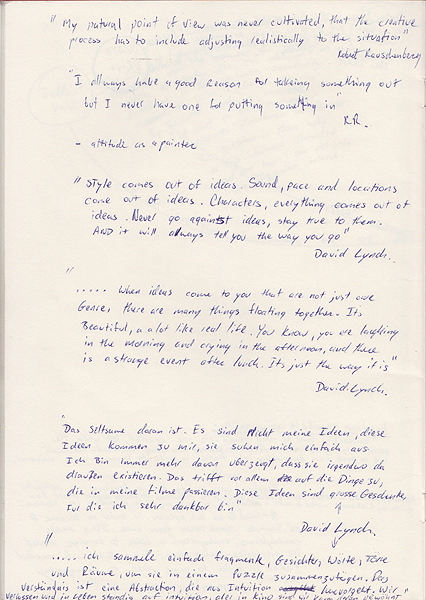 " My natural point of view was never cultivated, that the creative
process has to include adjusting realistically to the situation"
Robert Rauschenberg
"I allways have a good reason for takeing something out
but I never have one for putting something in"
R.R.
- attitude as a painter
" Style comes out of ideas. Sound, pace and locations
come out of ideas. Characters, everything comes out of
ideas. Never go against ideas, stay true to them.
AND it will always tell you the way you go"
David Lynch.
"
..... When ideas come to you that are not just one
Genre, there are many things floating together. Its
Beautiful, a a lot like real life. You know, you are laughing
in the morning and crying in the afternoon, and there
is a strange event after lunch. Its just the way it is"
David Lynch.
"
Das seltsame daran ist. Es sind nicht meine Ideen, diese
Ideen kommen zu mir, sie suhen mich einfach aus
Ich bin immer mehr davon überzeugt, dass sie irgendwo da
draußen existieren. Das trifft vor allem auf die Dinge zu,
die in meine Filme passieren. Diese Ideen sind grosse Geschenke,
für die ich sehr dankbar bin"
David Lynch.
"
..... ich sammele einfach fragmente, Gesichter, Worte, Töne
und Räume, um sie in einem Puzzle zusammenzufügen. Das
Verständnis ist eine Abstraction, die aus Intuition hervorgeht. Wir
verlassen uns im Leben ständig auf intuition, aber in Kino sind wir